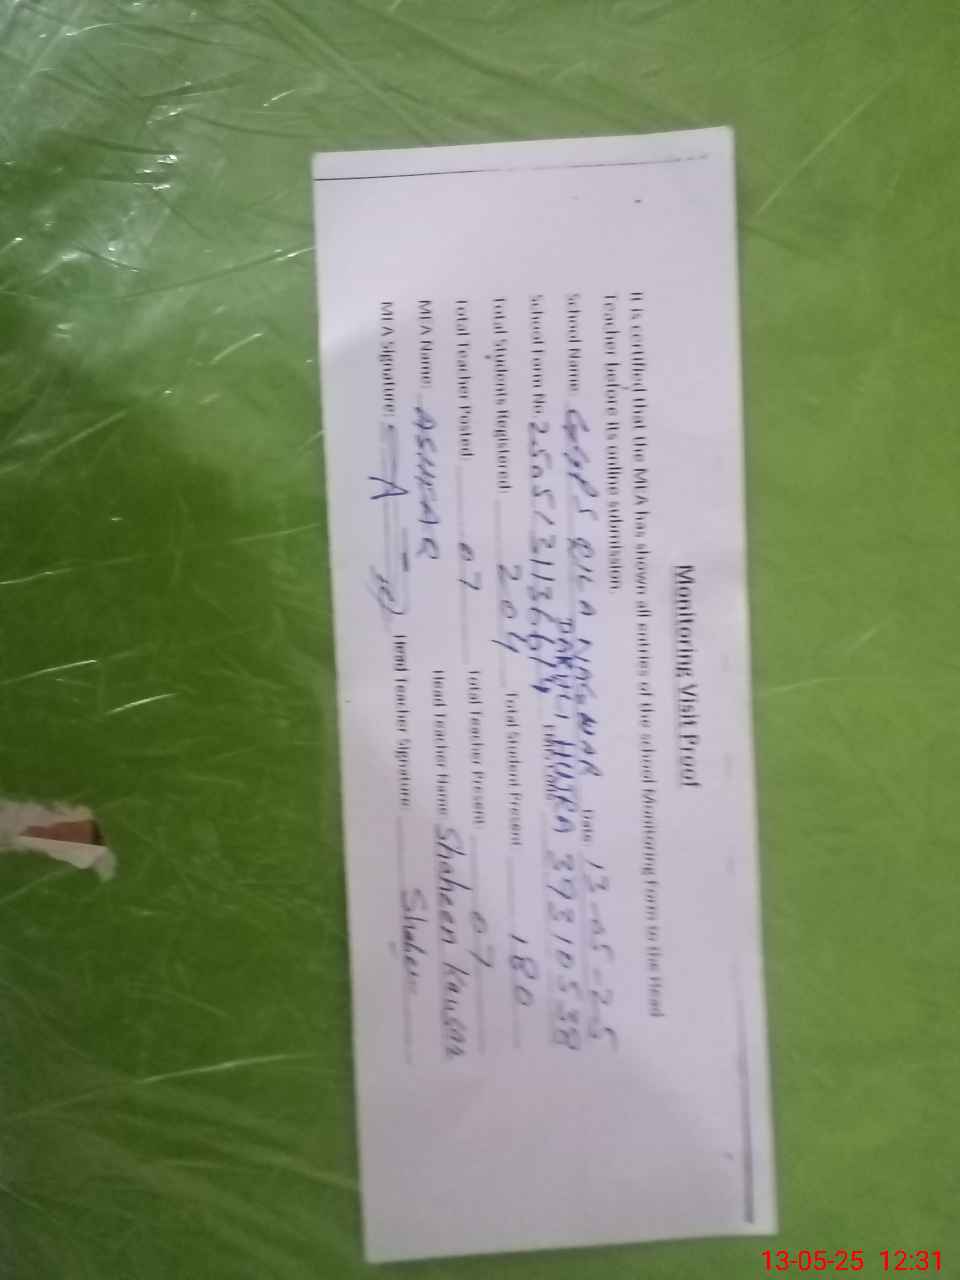 Monitoring Visit Proof
It is certified that the MEA has shown all entries of the school Monitoring Form to the Head
Teacher before its online submission.
School Name: GGPS QILA Date: 13-05-25
DAKULI HUJRA
School Form No. 39310538
Total Students Registered: 204 Total Student Present: 180
Total Teacher Posted: 07 Total Teacher Present: 07
MEA Name: ASHFAR Head Teacher Name: Shaheen Kausar
MEA Signature: Head Teacher Signature: Shaheen
13-05-25 12:31